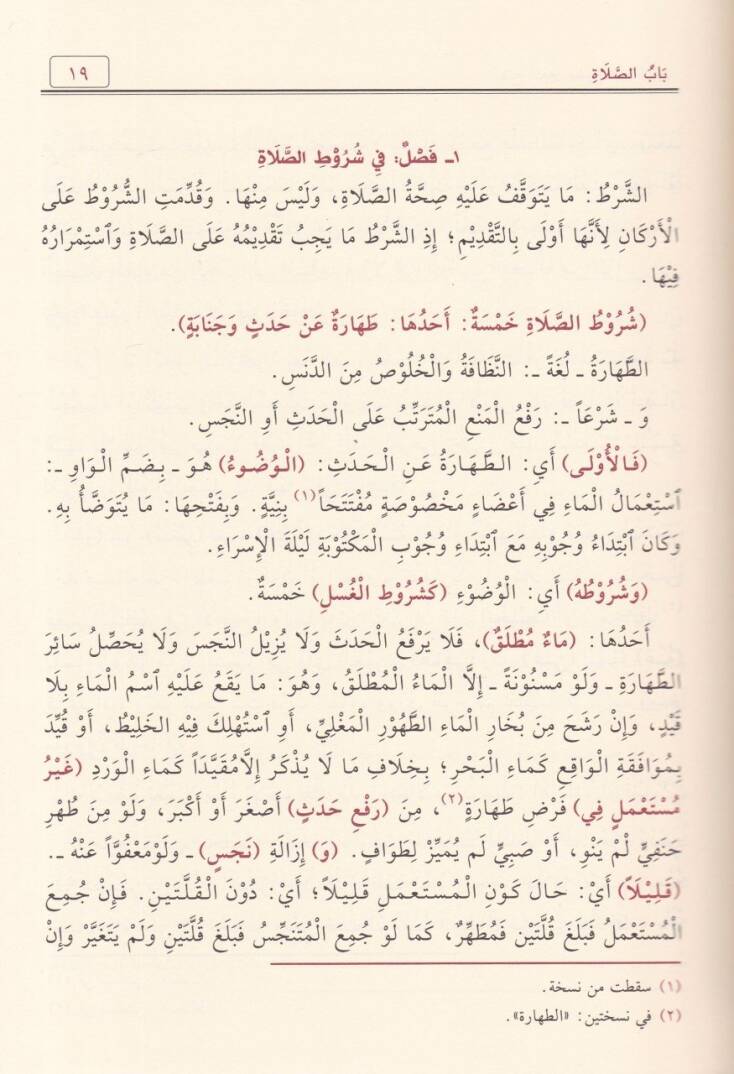 بَابُ الصَّلَاةِ
١٩
١ـ فَصْلٌ: فِي شُرُوْطِ الصَّلَاةِ
الشَّرْطُ: مَا يَتَوَقَّفُ عَلَيْهِ صِحَّةُ الصَّلَاةِ، وَلَيْسَ مِنْهَا. وَقُدِّمَتِ الشُّرُوْطُ عَلَى
الْأَرْكَانِ لِأَنَّهَا أَوْلَى بِالتَّقْدِيْمِ؛ إِذِ الشَّرْطُ مَا يَجِبُ تَقْدِيْمُهُ عَلَى الصَّلَاةِ وَٱسْتِمْرَارُهُ
فِيْهَا.
(شُرُوْطُ الصَّلَاةِ خَمْسَةٌ: أَحَدُهَا: طَهَارَةٌ عَنْ حَدَثٍ وَجَنَابَةٍ).
الطَّهَارَةُ ـ لُغَةً ـ: النَّظَافَةُ وَالْخُلُوْصُ مِنَ الدَّنَسِ.
وَ ـ شَرْعَاً ـ: رَفْعُ الْمَنْعِ الْمُتَرَتِّبِ عَلَى الْحَدَثِ أَوِ النَّجَسِ.
(فَالْأُوْلَى) أَيْ: الطَّهَارَةُ عَنِ الْحَدَثِ: (الْوُضُوْءُ) هُوَ ـ بِضَمِّ الْوَاوِ ـ:
ٱسْتِعْمَالُ الْمَاءِ فِي أَعْضَاءٍ مَخْصُوْصَةٍ مُفْتَتَحَاً(١) بِنِيَّةٍ. وَبِفَتْحِهَا: مَا يُتَوَضَّأُ بِهِ.
وَكَانَ ٱبْتِدَاءُ وُجُوْبِهِ مَعَ ٱبْتِدَاءِ وُجُوْبِ الْمَكْتُوْبَةِ لَيْلَةَ الْإِسْرَاءِ.
(وَشُرُوْطُهُ) أَيْ: الْوُضُوْءِ (كَشُرُوْطِ الْغُسْلِ) خَمْسَةٌ.
أَحَدُهَا: (مَاءٌ مُطْلَقٌ)، فَلَا يَرْفَعُ الْحَدَثَ وَلَا يُزِيْلُ النَّجَسَ وَلَا يُحَصِّلُ سَائِرَ
الطَّهَارَةِ ـ وَلَوْ مَسْنُوْنَةً ـ إِلَّا الْمَاءُ الْمُطْلَقُ، وَهُوَ: مَا يَقَعُ عَلَيْهِ ٱسْمُ الْمَاءِ بِلَا
قَيْدٍ، وَإِنْ رَشَحَ مِنْ بُخَارِ الْمَاءِ الطَّهُوْرِ الْمَغْلِيِّ، أَوِ ٱسْتُهْلِكَ فِيْهِ الْخَلِيْطُ، أَوْ قُيِّدَ
بِمُوَافَقَةِ الْوَاقِعِ كَمَاءِ الْبَحْرِ؛ بِخِلَافِ مَا لَا يُذْكَرُ إِلَّامُقَيَّدَاً كَمَاءِ الْوَرْدِ (غَيْرُ
مُسْتَعْمَلٍ فِي) فَرْضِ طَهَارَةٍ(٢)، مِنَ (رَفْعِ حَدَثٍ) أَصْغَرَ أَوْ أَكْبَرَ، وَلَوْ مِنَ طُهْرِ
حَنَفِيٍّ لَمْ يَنْوِ، أَوْ صَبِيٍّ لَم يُمَيِّزْ لِطَوَافٍ. (وَ) إِزَالَةِ (نَجَسٍ) ـ وَلَوْمَعْفُوَّاً عَنْهُ ـ.
(قَلِيْلَاً) أَيْ: حَالَ كَوْنِ الْمُسْتَعْمَلِ قَلِيْلَاً؛ أَيْ: دُوْنَ الْقُلَّتَيْنِ. فَإِنْ جُمِعَ
الْمُسْتَعْمَلُ فَبَلَغَ قُلَّتَيْنِ فَمُطَهِّرٌ، كَمَا لَوْ جُمِعَ الْمُتَنَجِّسُ فَبَلَغَ قُلَّتَيْنِ وَلَمْ يَتَغَيَّرْ وَإِنْ
(١) سقطت من نسخة.
(٢) في نسختين: «الطهارة».